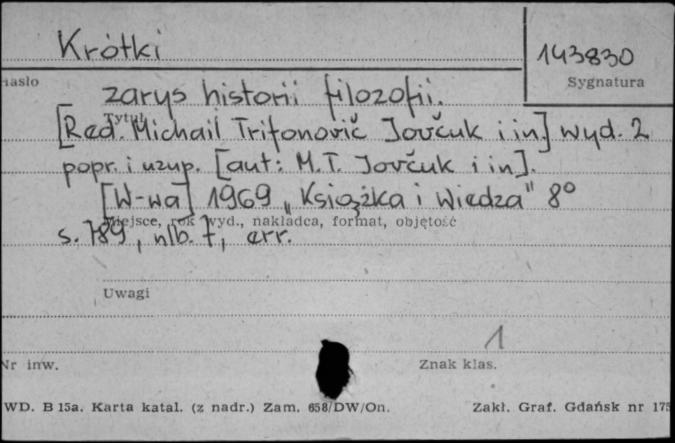 Krótki
143830
hasło
Sygnatura
zarys historii filozofii.
Tytuł
[Red. Michail Trifonovič Jovčuk i in.] wyd. 2
popr. i uzup. [aut: M.T. Jovčuk i in].
[W-wa] 1969 „Książka i Wiedza" 8°
Miejsce, rok wyd., nakładca, format, objętość
s. 789, nlb. 7, err.
Uwagi
1
Nr inw.
Znak klas.
WD. B 15a. Karta katal. (z nadr.) Zam. 658/DW/On.
Zakł. Graf. Gdańsk nr 175